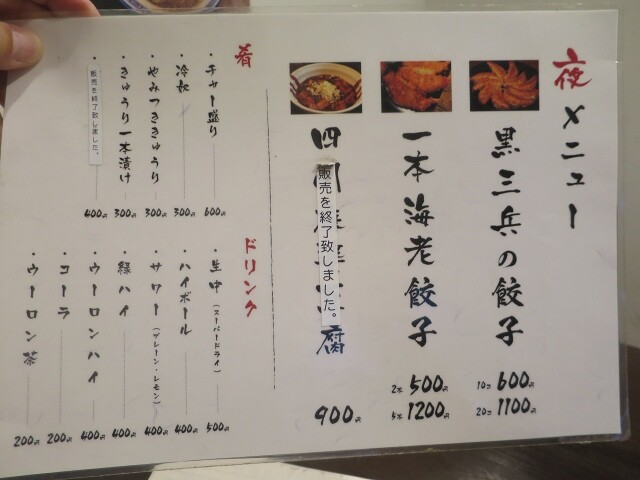 夜メニュー
黒三兵の餃子
10コ600円
20コ1100円
一本海老餃子
2本500円
5本1200円
四川
腐
販売を終了致しました。
900円
肴
・チャー盛り 600円
・冷奴 300円
・やみつききゅうり 300円
・きゅうり一本漬け 300円
・販売を終了致しました。 400円
ドリンク
・生中(スーパードライ) 500円
・ハイボール 400円
・サワー(プレーン・レモン) 400円
・緑ハイ 400円
・ウーロンハイ 400円
・コーラ 200円
・ウーロン茶 200円